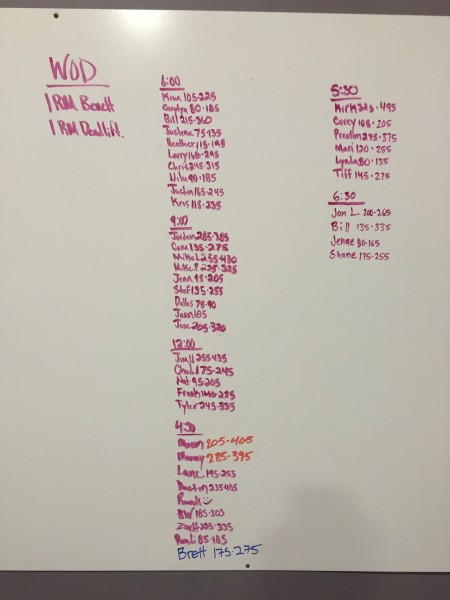 WOD
1 RM Bench
1 RM Deadlift.
6:00
Kim 105-225
80-185
Bill 215-360
Justine 75-135
Heather 115-195
Larry 165-295
Chris 245-315
90-185
Justin 165-245
Kris 115-235
9:00
Jordan 285-385
Cam 135-275
Mike L 255-430
Mike P 225-325
Jenn 95-205
Stef 135-255
Dallas 75-90
Juan 185
Jose 205-320
12:00
Jim U 255-435
Chad 175-245
Nat 95-205
Frank 140-285
Tyler 245-335
4:30
Mason 205-405
Manny 285-395
Lane 195-255
Dustin 235-405
Randi
BW 185-303
Zach 205-335
Randi 85-185
Brett 175-275
5:30
Kirk 325-495
Corey 105-205
Preston 275-375
Mari 120-255
Lynda 80-135
Tiff 145-275
6:30
Jon L. 200-265
Bill 135-335
Jenae 80-165
Shane 175-255